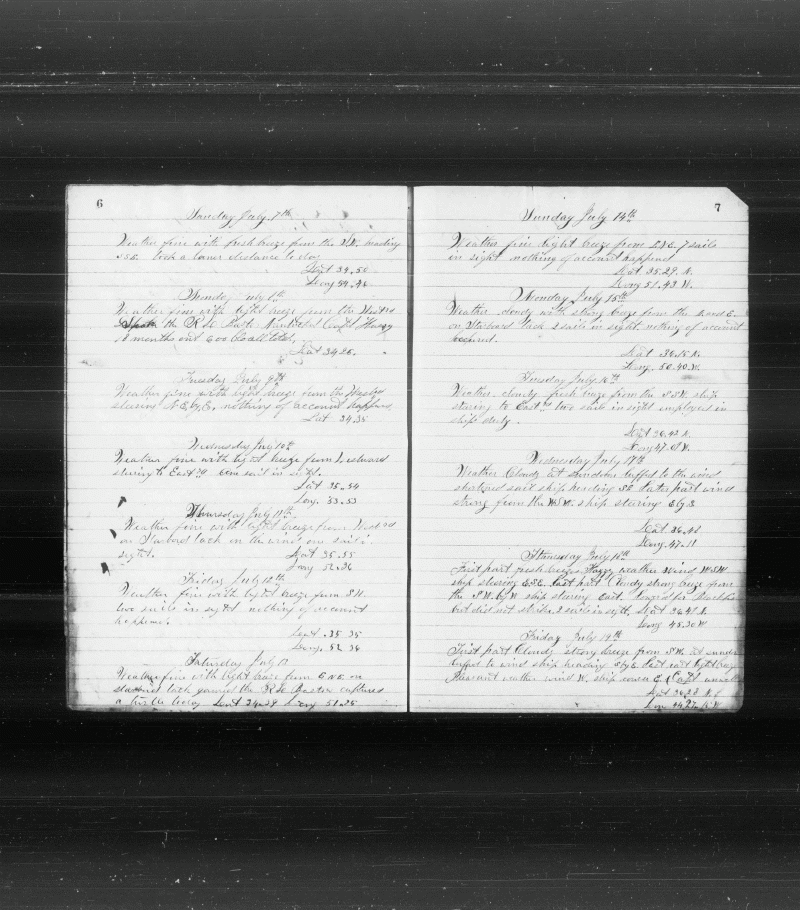 6
Sunday July 7th
Weather fine with fresh breeze from the S.W. heading
S S E. took a lunar distance today
Lat 34.50
Long 54.46
Monday July 8th
Weather fine with light breeze from the Westard
Spoke the R de Castor Nantucket Capt Hussy
18 months out 600 bbls all told.
Lat 34.26.
Tuesday July 9th
Weather fine with light breeze from the Westard
steering N.E. by E. nothing of account happens
Lat 34.35
Wednesday July 10th
Weather fine with light breeze from Westward
steering to Eastd one sail in sight.
Lat 35.54
Long. 53.53
Thursday July 11th
Weather fine with light breeze from Westard
on Starbord tack in the wind one sail in
sight.
Lat 35.55
Long 52.36
Friday July 12th
Weather fine with light breeze from S.W.
two sails in sight nothing of account
happens.
Lat. 35 35
Long. 52 36
Saturday July 13
Weather fine with light breeze from E N E. on
starbord tack gamed the R de Castor captured
a turtle today Lat 34.38 Long 51.25
7
Sunday July 14th
Weather fine light breeze from E.N.E. 7 sails
in sight nothing of account happened
Lat 35.29. N.
Long 51.43 W.
Monday July 15th
Weather cloudy with strong breeze from the N and E.
on Starbord tack 2 sails in sight nothing of account
occured.
Lat 36.15 N.
Long. 50.40. W.
Tuesday July 16th
Weather cloudy fresh breeze from the S S W. ship
stering to East two sails in sight employed in
ships duty.
Lat 36.42 N.
Long 47.51 W.
Wednesday July 17th
Weather Cloudy at sundown luffed to the wind
shortened sail ship heading S E. later part wind
strong from the W.S.W. ship steering E by S
Lat 36.48
Long. 47.11
Thursday July 18th
First part fresh breeze Hazy weather wind W.S.W.
ship steering E.S.E. last part Cloudy strong breeze from
the S W. by W ship steering East. lowered for Blackfish
but did not strike. 2 sails in sight. Lat 36.41 N.
Long 45.30 W
Friday July 19th
First part Cloudy strong breeze from S.W. at sundown
luffed to wind ship heading S by E. last part light breeze
Pleasant weather wind W. ship course E.
Lat 36.23 N.
Lon 44.27 W